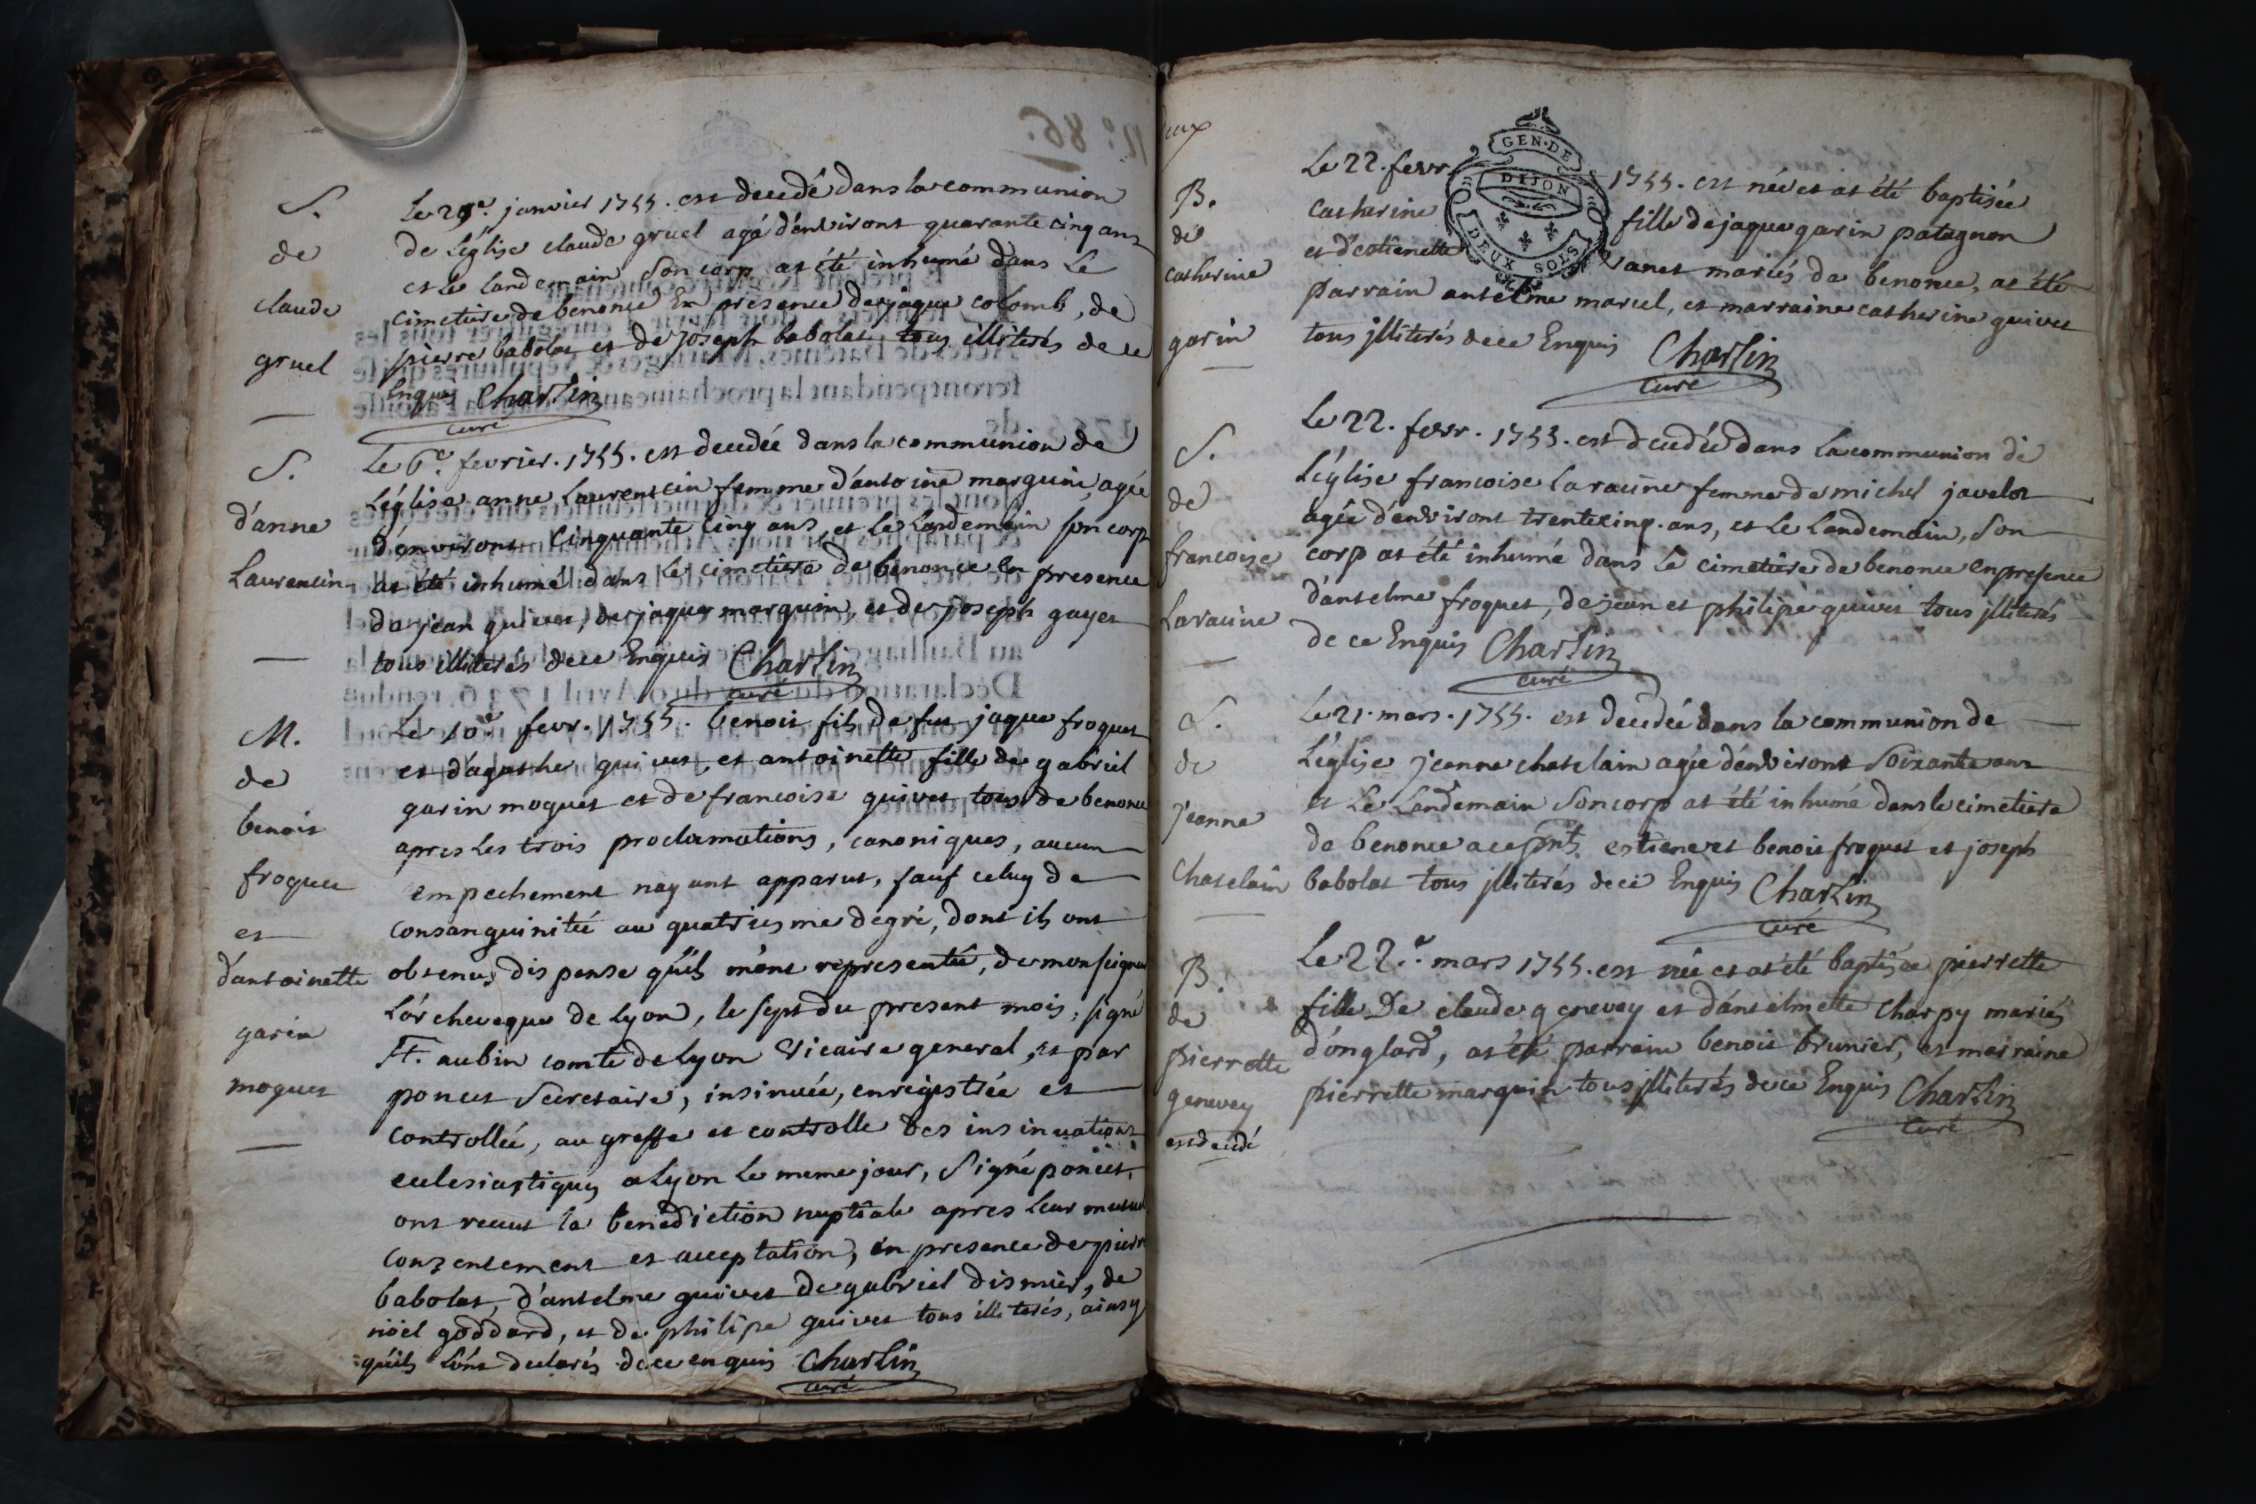 S.
de
claude
gruel
Le 29e. janvier 1755. est decedé dans la communion
de Léglise claude gruel agé d'environt quarante cinq ans
et le landemain son corp at été inhumé dans Le
cimetiere de benonce En presence de jaque colomb, de
pierre babolat et de joseph babolat tous illiterés de ce
Enquis Charlin
curé
S.
d'anne
Laurencin
Le 6e. fevrier. 1755. est decedée dans la communion de
Léglise anne Laurentein femme d'antoine marquin agée
d'environt cinquante cinq ans, et le Landemain son corp
at été inhumé dans le cimetiere de benonce en presence
de jean quivet, de jaque marquin, et de joseph gayet
tous illiterés de ce Enquis Charlin
curé
M.
de
benoit
froquet
et
d'antoinette
garin
moquet
Le 10e fevr. 1755. benoit fils de fut jaque froquet
et d'agathe quivet, et antoinette fille de gabriel
garin moquet et de francoise quivet tous de benonce
apres les trois proclamations, canoniques, aucun
empechement nayant apparut, sauf celuy de
consanguinitée au quatriesme degré, dont ils ont
obtenus dispense qu'ils m'ont representée, de monseigneur
L'archeveque de Lyon, le sept du present mois, signé
St. aubin comte de Lyon Vicaire general, et par
poncet Secretaire, insinuée, enregistrée et
controllée, au greffe et controlle des insinuations
eclesiastiques a Lyon le meme jour, Signé poncet,
ont recut la benediction nuptiale apres leur mutuel
consentement et acceptation, en presence de pierre
babolat, d'antelme quivet de gabriel dismier, de
nöel goddard, et de philipe quivet tous illiterés, ainsy
qu'ils l'ont declarés de ce enquis Charlin
curé
deux
GEN·DE
DIJON
DEUX SOLS
B.
de
catherine
garin
Le 22. fevr. 1755. est née et at été baptisée
catherine fille de jaque garin patagnon
et d'estienette vanet mariés de benonce, at été
parrain antelme marcel, et marraine catherine quivet
tous illiterés de ce Enquis Charlin
curé
S.
de
francoise
Laracine
Le 22. fevr. 1755. est decedée dans la communion de
Léglise francoise Laracine femme de michel javelot
agée d'environt trente cinq. ans, et le Landemain, son
corp at été inhumé dans le cimetiere de benonce en presence
d'antelme froquet, de jean et philipe quivet tous illiterés
de ce Enquis Charlin
curé
S.
de
jeanne
Chatelain
Le 21. mars. 1755. est decedée dans la communion de
Léglise jeanne chatelain agée d'environt soixante ans
et Le Landemain son corp at été inhumé dans le cimetiere
de benonce a ce pnts. estiene et benoit froquet et joseph
babolat tous illiterés de ce Enquis Charlin
curé
B.
de
pierrette
genevey
est decedé
Le 22e. mars 1755. est née et at été baptisée pierrette
fille De claude genevey et d'antelmette Charpy mariés
d'onglard, at été parrain benoit brunier, et mairaine
pierrette marquin tous illiterés de ce Enquis Charlin
curé